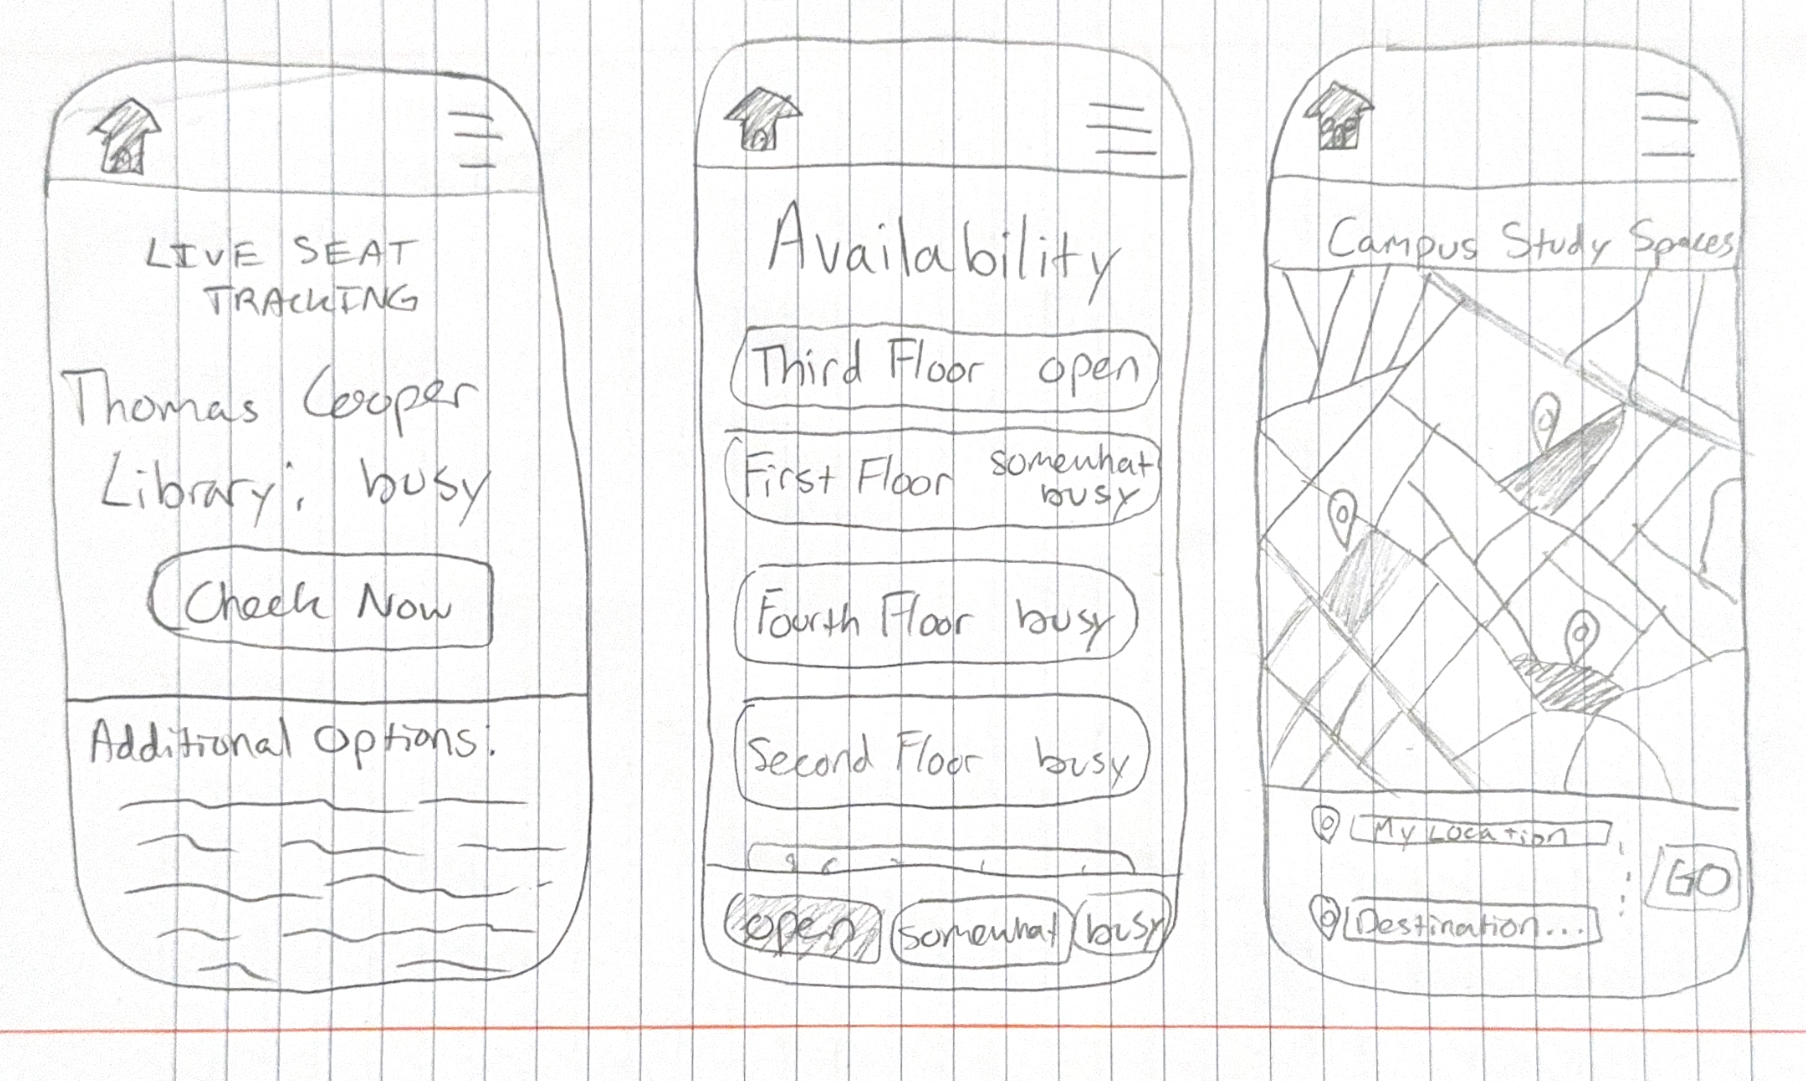 LIVE SEAT
TRACKING
Thomas Cooper
Library: busy
Check Now
Additional Options:
Availability
Third Floor open
First Floor somewhat
busy
Fourth Floor busy
Second Floor busy
open somewhat busy
Campus Study Spaces
My Location
GO
Destination...